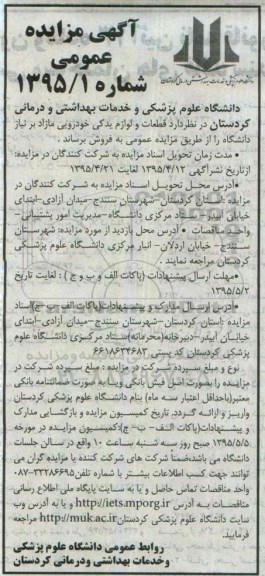 آگهی مزایده
عمومی
شماره ۱۳۹۵/۱
دانشگاه علوم پزشکی و خدمات بهداشتی و درمانی
کردستان در نظردارد قطعات و لوازم یدکی خودرویی مازاد بر نیاز
دانشگاه را از طریق مزایده عمومی به فروش برساند .
• مدت زمان تحویل اسناد مزایده به شرکت کنندگان در مزایده:
ازتاریخ نشرآگهی ۱۳۹۵/۴/۱۲ لغایت ۱۳۹۵/۴/۲۱
•آدرس محل تحویل اسناد مزایده به شرکت کنندگان در
مزایده :استان کردستان–شهرستان سنندج–میدان آزادی–ابتدای
خیابان آبیدر–ستاد مرکزی دانشگاه–مدیریت امور پشتیبانی–
واحد مناقصات • آدرس محل بازدید از مورد مزایده: شهرستان
سنندج– خیابان اردلان– انبار مرکزی دانشگاه علوم پزشکی
کردستان مراجعه نمایند .
•مهلت ارسال پیشنهادات (پاکات الف و ب و ج ) : لغایت تاریخ
۱۳۹۵/۵/۲
•آدرس ارسال مدارک و پیشنهادات(پاکات الف–ب–ج)اسناد
مزایده :استان کردستان–شهرستان سنندج–میدان آزادی–ابتدای
خیابان آبیدر–دبیرخانه(محرمانه)ستاد مرکزی دانشگاه علوم
پزشکی کردستان کد پستی ۶۶۱۸۶۳۴۶۸۳
نوع و مبلغ سپرده شرکت در مزایده : مبلغ سپرده شرکت در
مزایده را بصورت اصل فیش بانکی ویا به صورت ضمانتنامه بانکی
معتبر(باحداقل اعتبار سه ماه) بنام دانشگاه علوم پزشکی کردستان
واریز و ارائه گردد. تاریخ کمیسیون مزایده و بازگشایی مدارک
و پیشنهادات(پاکات الف– ب– ج):کمیسیون مزایده در مورخه
۱۳۹۵/۵/۵ صبح روز سه شنبه ساعت ۱۰ واقع در سالن جلسات
دانشگاه می باشدضمنا شرکت های شرکت کننده یا مزایده گران می
توانند جهت کسب اطلاعات بیشتر با شماره تلفن ۳۳۲۸۶۶۹۵–۰۸۷
واحد مناقصات تماس حاصل و یا به سایت پایگاه ملی اطلاع رسانی
مناقصات به آدرس http://iets.mporg.ir و یا به آدرس وب
سایت دانشگاه علوم پزشکی کردستان http://muk.ac.ir مراجعه
فرمایید.
روابط عمومی دانشگاه علوم پزشکی
وخدمات بهداشتی ودرمانی کردستان